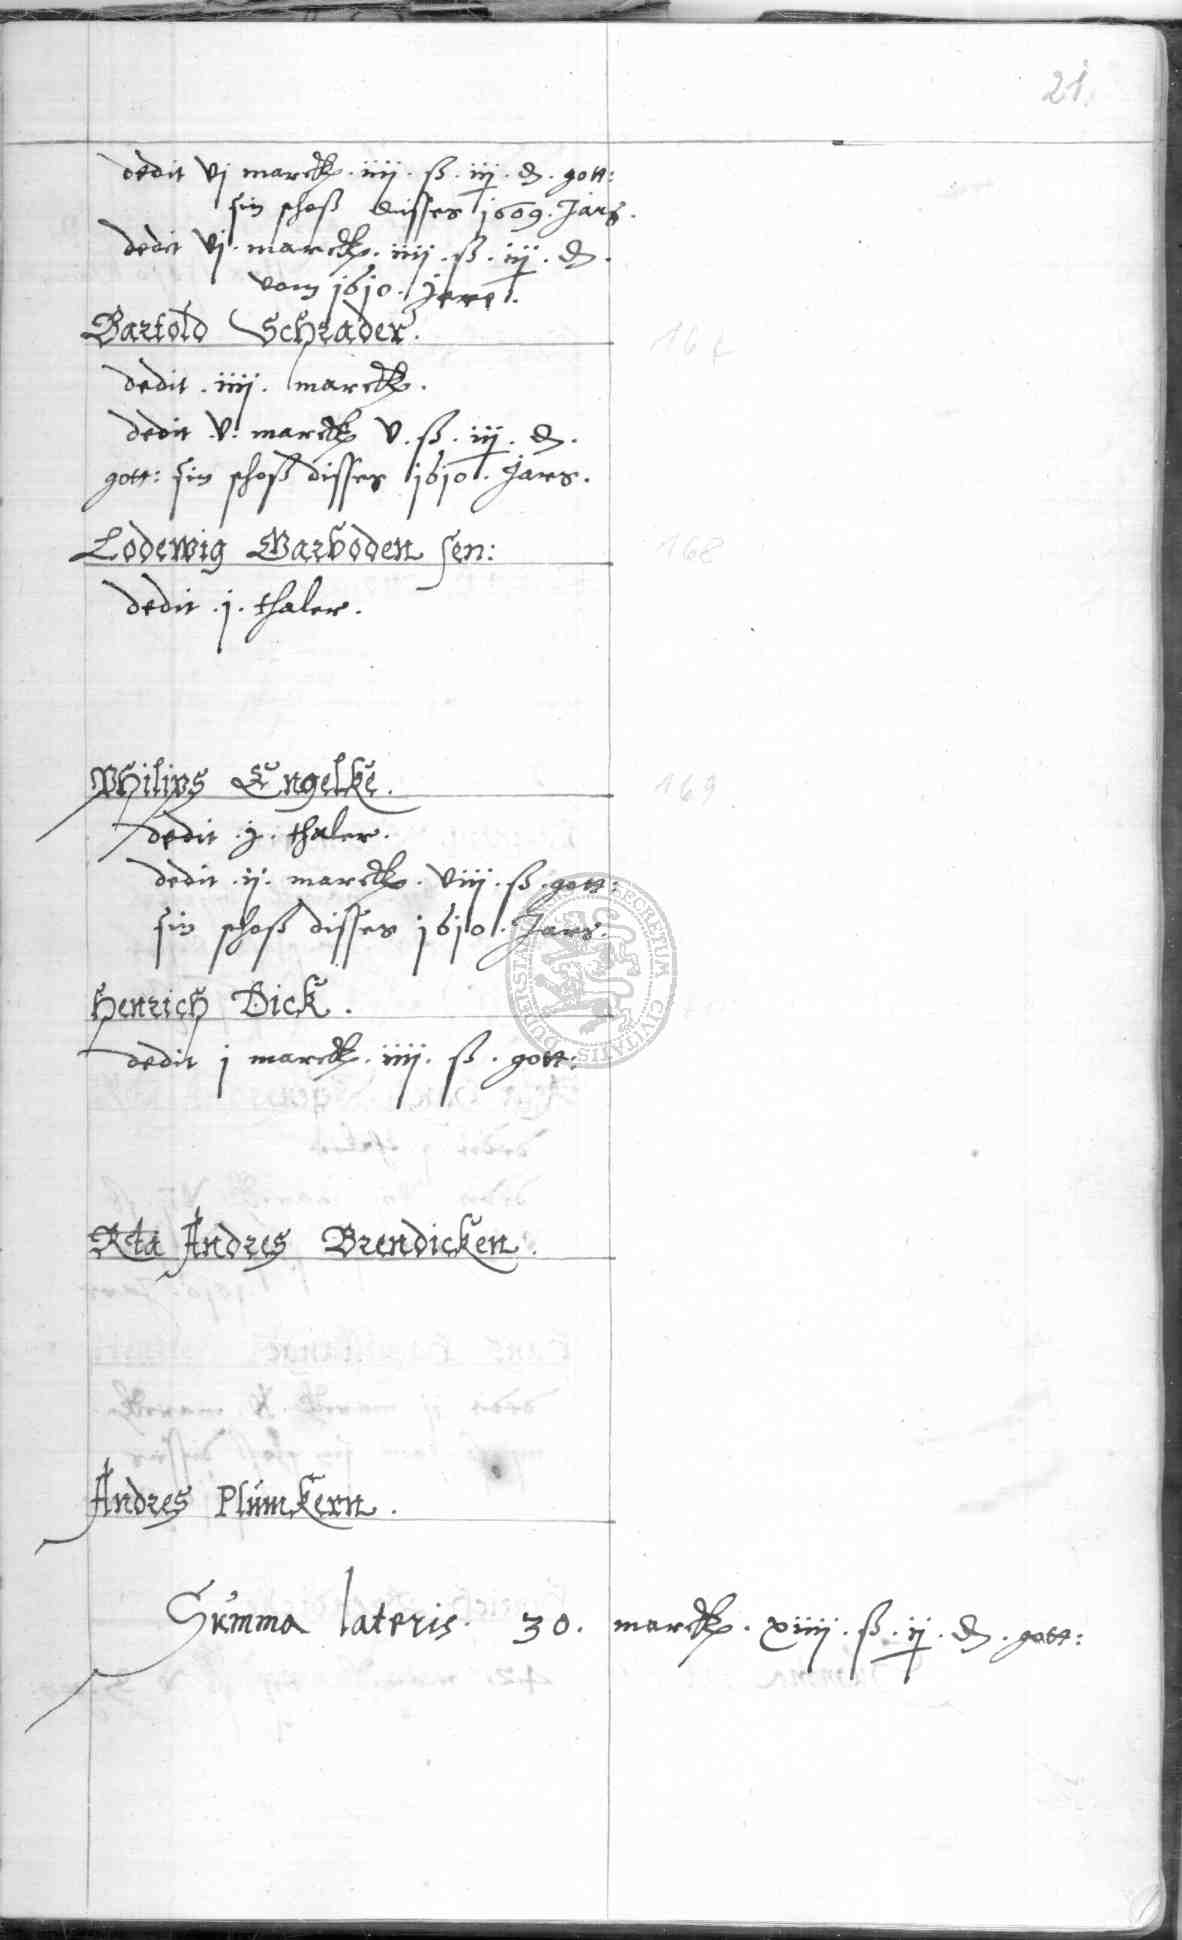 21.
dedit vj marck. iiij. ß. iij. d. gott:
sin schoß disses 1609. Jars.
dedit vj. marck. iiij. ß. iij. d.
vom 1610. Jare.
Bartold Schrader.
dedit. iiij. marck.
dedit. v. marck v. ß. iij. d.
gott: sin schoß disses 1610. Jars.
Lodewig Barboden sen:
168
dedit. j. thaler.
Philips Engelke.
169
dedit. j. thaler.
dedit. ij. marck. viij. ß. gott:
sin schoß disses 1610. Jars.
SECRETUM CIVITATIS
Henrich Dick.
dedit j marck. iiij. ß. gott:
Andres Brendicken.
Andres Plümkern.
Summa lateris. 30. marck. xiiij. ß. ij. d. gott: